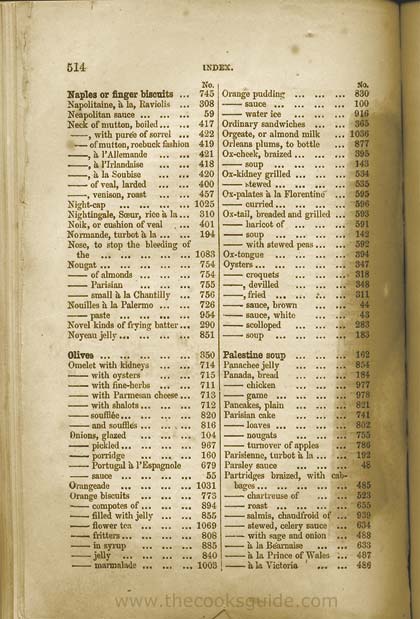 514
INDEX.
No.
Naples or finger biscuits ... 745
Napolitaine, à la, Raviolis ... 308
Neapolitan sauce ... ... ... 59
Neck of mutton, boiled... ... 417
——, with purée of sorrel ... 422
—— of mutton, roebuck fashion 419
——, à l'Allemande ... ... 421
——, à l'Irlandaise ... ... 418
——, à la Soubise ... ... 420
—— of veal, larded ... ... 400
——, venison, roast ... ... 457
Night-cap ... ... ... ... 1025
Nightingale, Sœur, rice à la... 310
Noik, or cushion of veal ... 401
Normande, turbot à la ... ... 194
Nose, to stop the bleeding of
the ... ... ... ... ... 1083
Nougat ... ... ... ... ... 754
—— of almonds ... ... ... 754
—— Parisian ... ... ... 755
—— small à la Chantilly ... 756
Nouilles à la Palermo ... ... 726
—— paste ... ... ... ... 954
Novel kinds of frying batter... 290
Noyeau jelly ... ... ... ... 851
Olives ... ... ... ... ... 350
Omelet with kidneys ... ... 714
—— with oysters ... ... 715
—— with fine-herbs ... ... 711
—— with Parmesan cheese ... 713
—— with shalots ... ... ... 712
—— soufflée... ... ... ... 820
—— and soufflés ... ... ... 816
Onions, glazed ... ... ... 104
—— pickled... ... ... ... 967
—— porridge ... ... ... 160
—— Portugal à l'Espagnole 679
—— sauce ... ... ... ... 55
Orangeade ... ... ... ... 1031
Orange biscuits ... ... ... 773
—— compotes of ... ... ... 894
—— filled with jelly ... ... 855
—— flower tea ... ... ... 1069
—— fritters... ... ... ... 808
—— in syrup ... ... ... 885
—— jelly ... ... ... ... 840
—— marmalade ... ... ... 1003
No.
Orange pudding ... ... ... 830
—— sauce ... ... ... ... 100
—— water ice ... ... ... 916
Ordinary sandwiches ... ... 365
Orgeate, or almond milk ... 1036
Orleans plums, to bottle ... 877
Ox-cheek, braized ... ... ... 395
—— soup ... ... ... ... 143
Ox-kidney grilled ... ... ... 534
—— stewed ... ... ... ... 535
Ox-palates à la Florentine ... 595
—— curried ... ... ... ... 596
Ox-tail, breaded and grilled ... 593
—— haricot of ... ... ... 591
—— soup ... ... ... ... 142
—— with stewed peas ... ... 592
Ox-tongue ... ... ... ... 394
Oysters ... ... ... ... ... 347
——, croquets ... ... ... 318
——, devilled ... ... ... 348
——, fried ... ... ... ... 311
—— sauce, brown ... ... 44
—— sauce, white ... ... 43
—— scolloped ... ... ... 283
—— soup ... ... ... ... 183
Palestine soup ... ... ... 162
Panachee jelly ... ... ... 854
Panada, bread ... ... ... 184
—— chicken ... ... ... 977
—— game ... ... ... ... 978
Pancakes, plain ... ... ... 821
Parisian cake ... ... ... 741
—— loaves ... ... ... ... 802
—— nougats ... ... ... 755
—— turnover of apples ... 786
Parisienne, turbot à la ... ... 192
Parsley sauce ... ... ... 48
Partridges braized, with cab-
bages ... ... ... ... ... 485
—— chartreuse of ... ... 523
—— roast ... ... ... ... 655
—— salmis, chaudfroid of ... 939
—— stewed, celery sauce ... 634
—— with sage and onion ... 488
—— à la Béarnaise ... ... 633
—— à la Prince of Wales ... 487
—— à la Victoria ... ... 486
www.thecooksguide.com